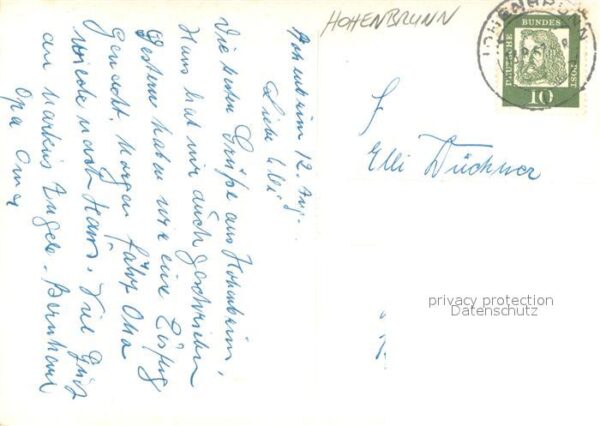 HOHENBRUNN
HOHENBRUNN
DEUTSCHE BUNDES POST
10
12. Aug.
Liebe Elli
Die besten Grüße aus
Hans hat mir auch geschrieben
Gestern haben wir eine
gemacht. Morgen fährt Oma
wieder nach Haus. Viele Grüße
an Markus
Opa Oma
Elli Dückner
privacy protection
Datenschutz